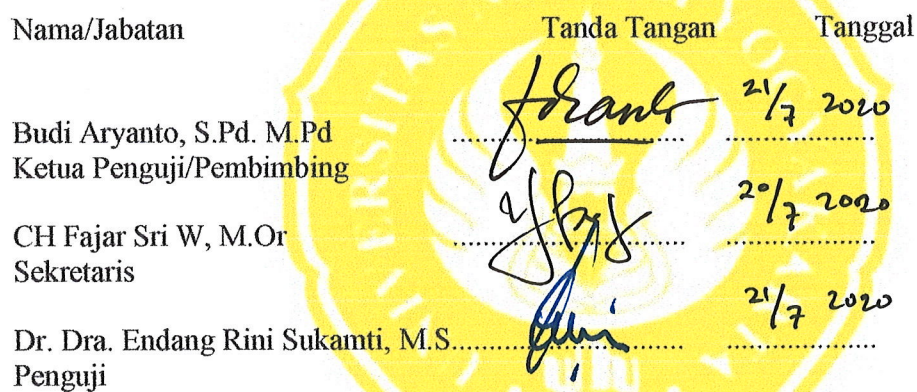 Nama/Jabatan Tanda Tangan Tanggal
21/7 2020
Budi Aryanto, S.Pd. M.Pd
Ketua Penguji/Pembimbing
20/7 2020
CH Fajar Sri W, M.Or
Sekretaris
21/7 2020
Dr. Dra. Endang Rini Sukamti, M.S.
Penguji